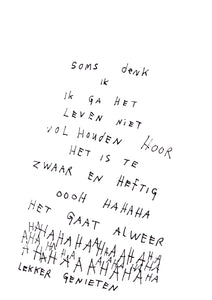 soms denk
ik
ik ga het
leven niet
vol houden hoor
het is te
zwaar en heftig
oooh hahaha
het gaat alweer
hahahahahahahaha
ahahahahahahaha
ahahaaahahaha
lekker genieten